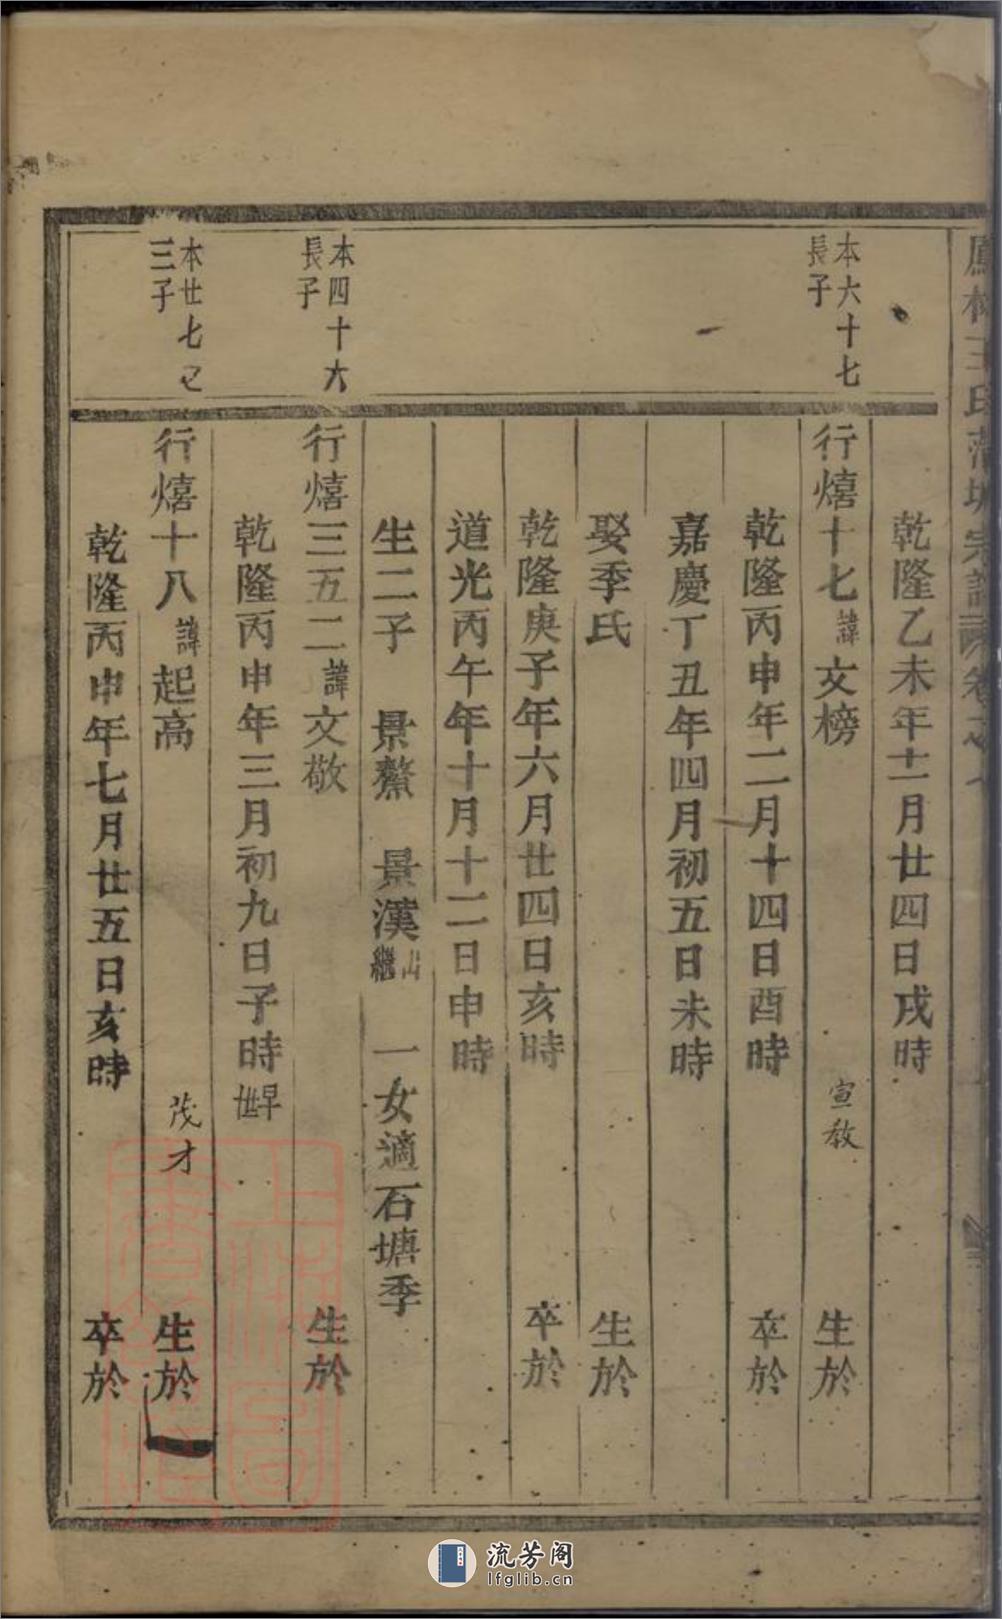 乾隆乙未年十二月廿四日戌時
本六十七
長子
行熺十七諱文榜 宣教 生於
乾隆丙申年二月十四日酉時 卒於
嘉慶丁丑年四月初五日未時
娶季氏 生於
乾隆庚子年六月廿四日亥時 卒於
道光丙午年十月十二日申時
生二子 景鰲 景漢出繼 一女適石塘季
本四十六
長子
行熺三五二諱文敬 生於
乾隆丙申年三月初九日子時早世
本廿七
三子
行熺十八諱起高 茂才 生於
乾隆丙申年七月廿五日亥時 卒於
流芳阁
lfglib.cn